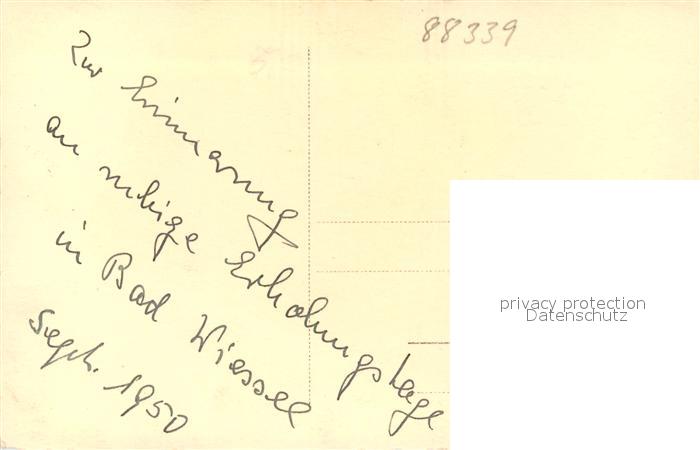 88339
Zur Erinnerung
an ruhige Erholungstage
in Bad Wiessee
Sept. 1950
privacy protection
Datenschutz